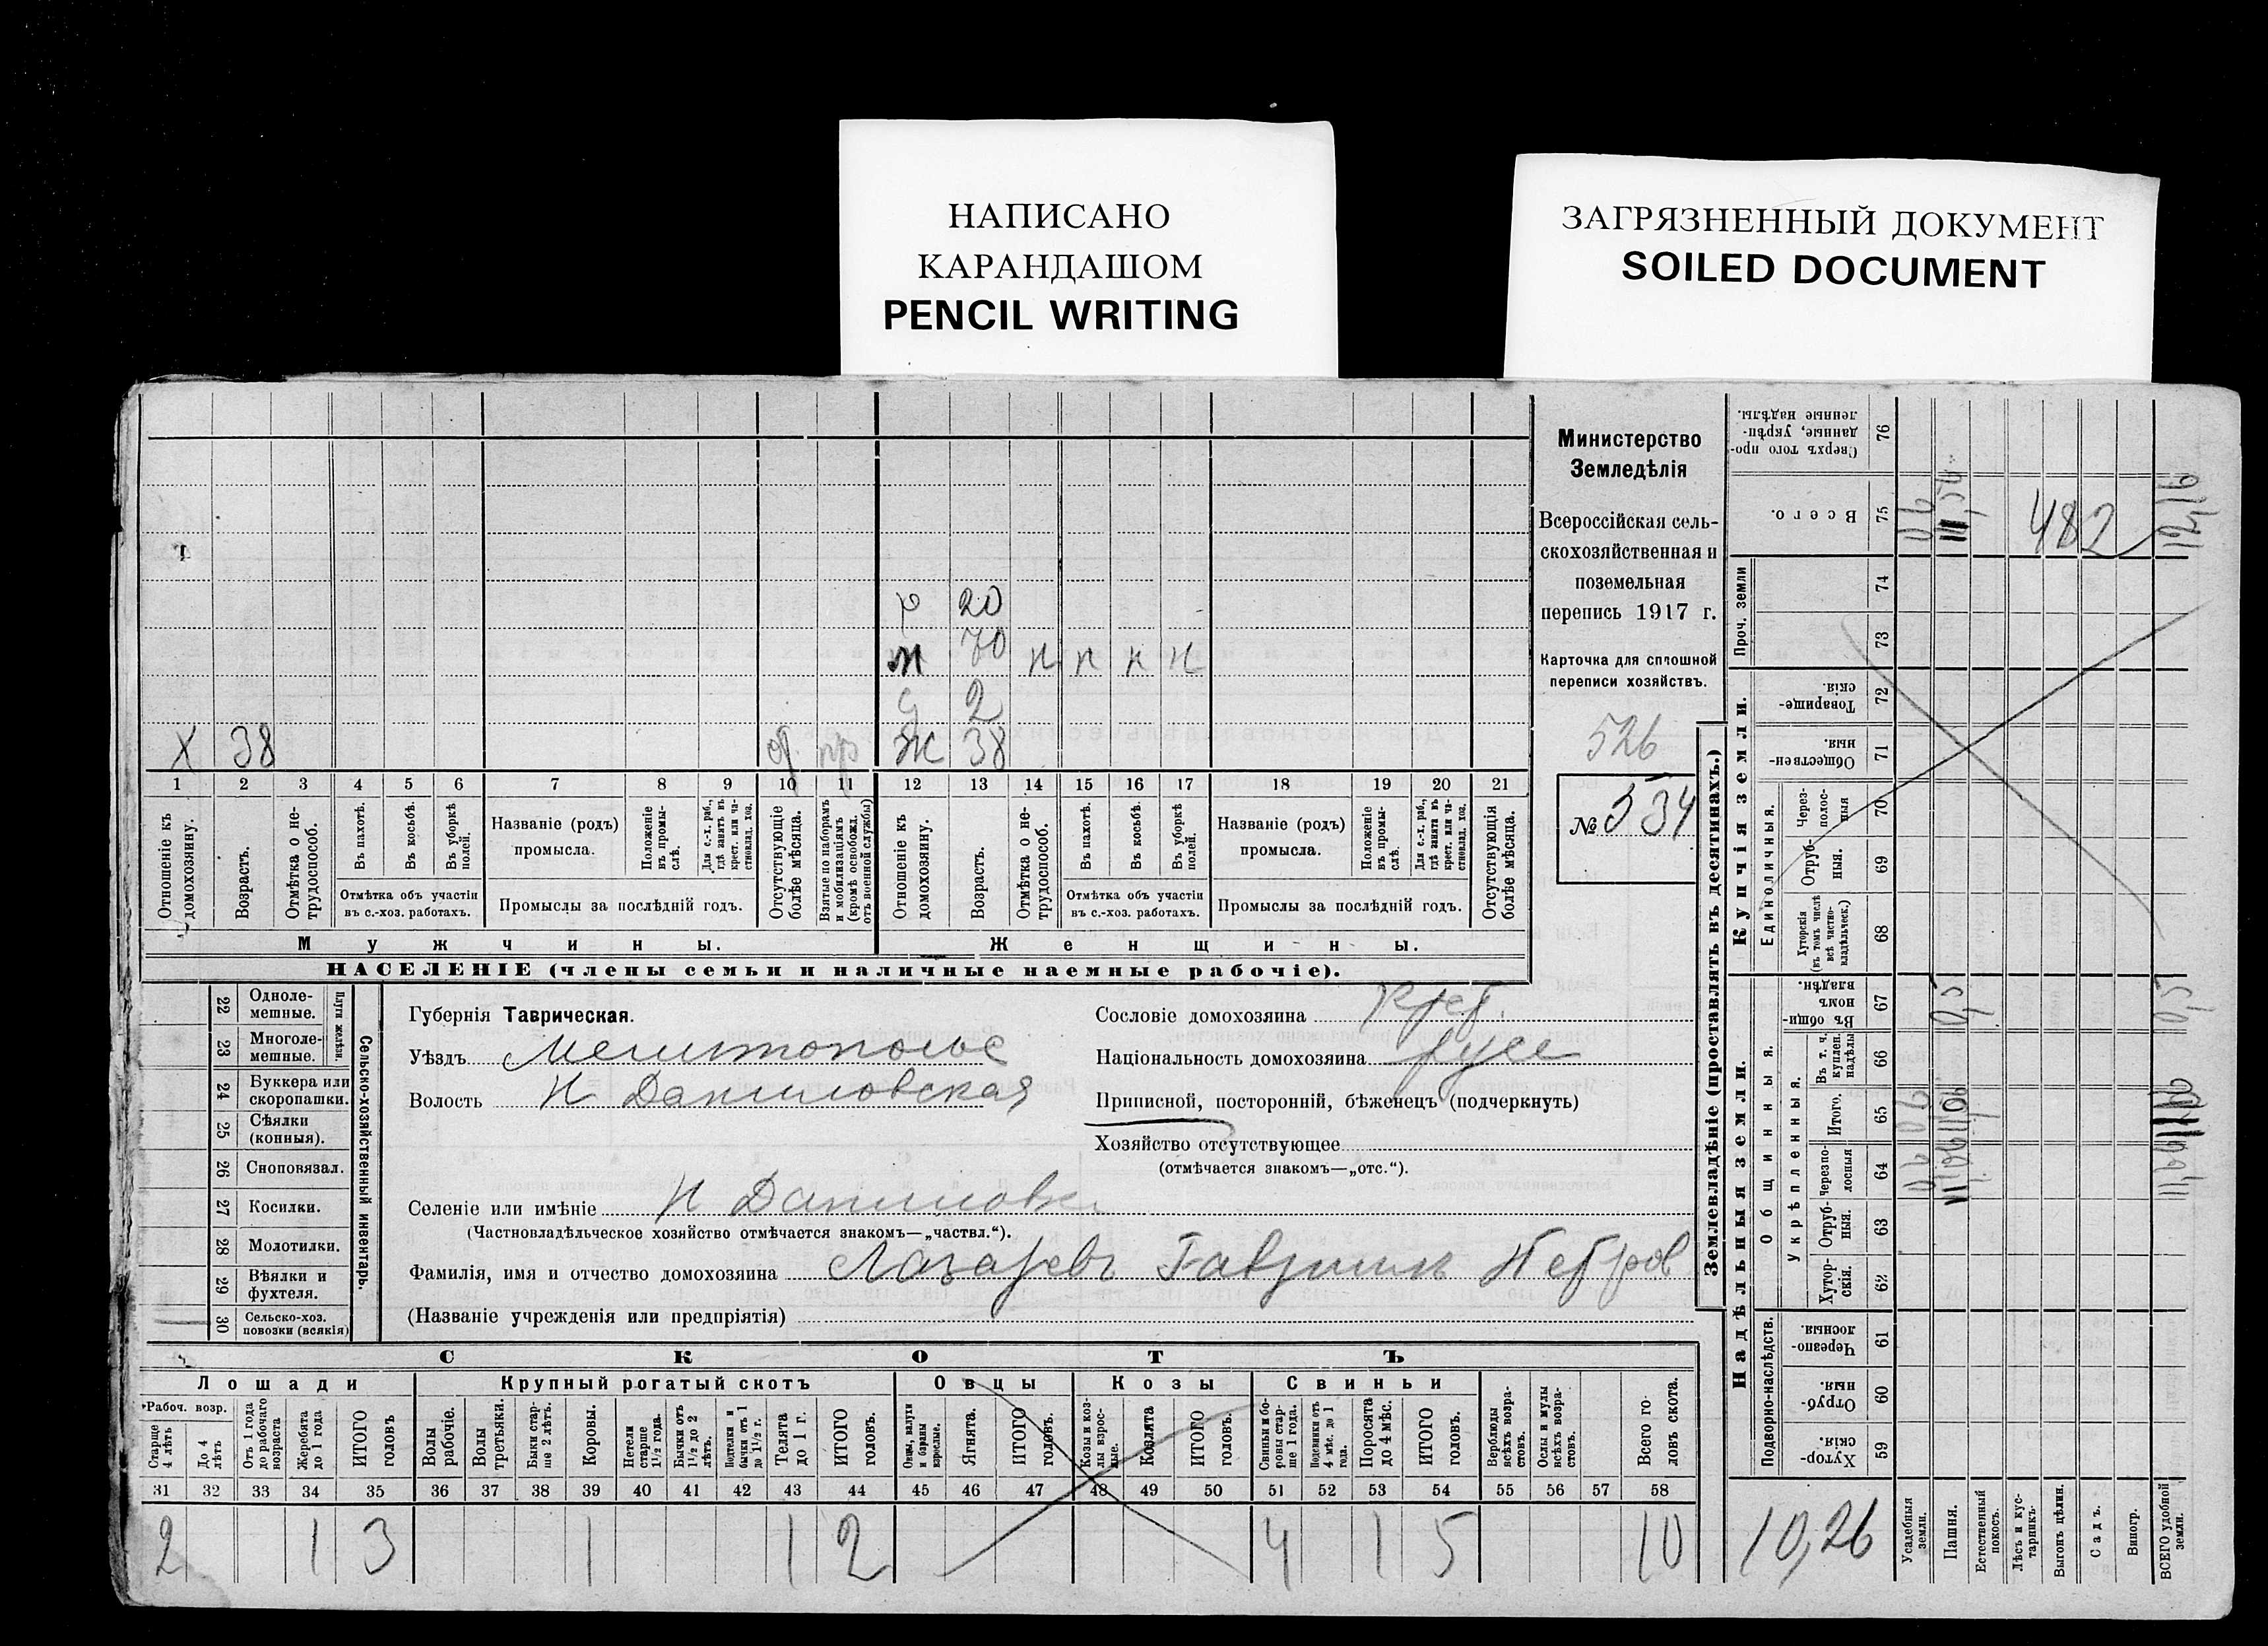 НАПИСАНО
КАРАНДАШОМ
PENCIL WRITING
ЗАГРЯЗНЕННЫЙ ДОКУМЕНТ
SOILED DOCUMENT
20
м 70 н н н н
2
Х 38
Ж 38
1 2 3 4 5 6 7 8 9 10 11 12 13 14 15 16 17 18 19 20 21
Отношеніе къ домохозяину.
Возрастъ.
Отмѣтка о не-трудоспособ.
Въ пахотѣ.
Въ косьбѣ.
Въ уборкѣ полей.
Отмѣтка объ участіи
въ с.-хоз. работахъ.
Названіе (родъ)
промысла.
Положеніе въ промы-слѣ.
Для с.-х. раб., гдѣ занятъ въ крест. или ча-стновлад. хоз.
Промыслы за послѣдній годъ.
Отсутствующіе болѣе мѣсяца.
Взятые по наборамъ и мобилизаціямъ (кромѣ освобожд. отъ военной службы)
Отношеніе къ домохозяину.
Возрастъ.
Отмѣтка о не-трудоспособ.
Въ пахотѣ.
Въ косьбѣ.
Въ уборкѣ полей.
Отмѣтка объ участіи
въ с.-хоз. работахъ.
Названіе (родъ)
промысла.
Положеніе въ промы-слѣ.
Для с.-х. раб., гдѣ занята въ крест. или ча-стновлад. хоз.
Промыслы за послѣдній годъ.
Отсутствующія болѣе мѣсяца.
Мужчины.
Женщины.
НАСЕЛЕНІЕ (члены семьи и наличные наемные рабочіе).
Министерство
Земледѣлія
Всероссійская сель-
скохозяйственная и
поземельная
перепись 1917 г.
Карточка для сплошной
переписи хозяйствъ.
526
№ 534
22 Одноле-мешные.
23 Многоле-мешные.
Плуги желѣзн.
24 Буккера или скоропашки.
25 Сѣялки (конныя).
26 Сноповязал.
27 Косилки.
28 Молотилки.
29 Вѣялки и фухтеля.
30 Сельско-хоз. повозки (всякія)
1
Сельско-хозяйственный инвентарь.
Губернія Таврическая.
Уѣздъ Мелитополье
Волость Н Даниловская
Селеніе или имѣніе Н Даниловк
(Частновладѣльческое хозяйство отмѣчается знакомъ—„частвл.“).
Фамилія, имя и отчество домохозяина Лазаревъ Гавриилъ Петров
(Названіе учрежденія или предпріятія)
Сословіе домохозяина Крест.
Національность домохозяина русс
Приписной, посторонній, бѣженецъ (подчеркнуть)
Хозяйство отсутствующее
(отмѣчается знакомъ—„отс.“).
СКОТЪ
Лошади
Крупный рогатый скотъ
Овцы
Козы
Свиньи
Рабоч. возр.
Старше 4 лѣтъ
До 4 лѣтъ
Отъ 1 года до рабочаго возраста
Жеребята до 1 года
ИТОГО головъ
Волы рабочіе.
Волы третьяки.
Быки стар-ше 2 лѣтъ.
Коровы.
Нетели старше 1½ года.
Бычки отъ 1½ до 2 лѣтъ.
Подтелки и бычки отъ 1 до 1½ г.
Телята до 1 г.
ИТОГО головъ.
Овцы, валухи и бараны взрослые.
Ягнята.
ИТОГО головъ.
Козы и коз-лы взрос-лые.
Козлята
ИТОГО головъ.
Свиньи и бо-ровы стар-ше 1 года.
Подсвинки отъ 4 мѣс. до 1 года.
Поросята до 4 мѣс.
ИТОГО головъ.
Верблюды всѣхъ возра-стовъ.
Ослы и мулы всѣхъ возра-стовъ.
Всего го-ловъ скота.
31 32 33 34 35 36 37 38 39 40 41 42 43 44 45 46 47 48 49 50 51 52 53 54 55 56 57 58
2 1 3 1 1 2 4 1 5 10
Землевладѣніе (проставлять въ десятинахъ.)
Купчія земли.
Надѣльныя земли.
Сверхъ того про-данные, укрѣп-ленные надѣлы.
76
Всего.
75
Проч. земли
74
73
Товарище-скія.
72
Обществен-ныя.
71
Единоличныя.
Через-полос-ныя
70
Отруб-ныя.
69
Хуторскія (въ томъ числѣ всѣ частно-владѣльческ.)
68
Общинныя.
Въ общин-номъ владѣн.
67
Укрѣпленныя.
Въ т. ч. куплен. надѣлы
66
Итого.
65
Черезпо-лосныя
64
Отруб-ныя.
63
Хутор-скія.
62
Подворно-наслѣдств.
Черезпо-лосныя.
61
Отруб-ныя.
60
Хутор-скія.
59
482
0,5
10,26
Усадебныя земли.
Пашня.
Естественный покосъ.
Лѣсъ и кус-тарникъ.
Выгонъ цѣлин.
Садъ.
Виногр.
ВСЕГО удобной земли.